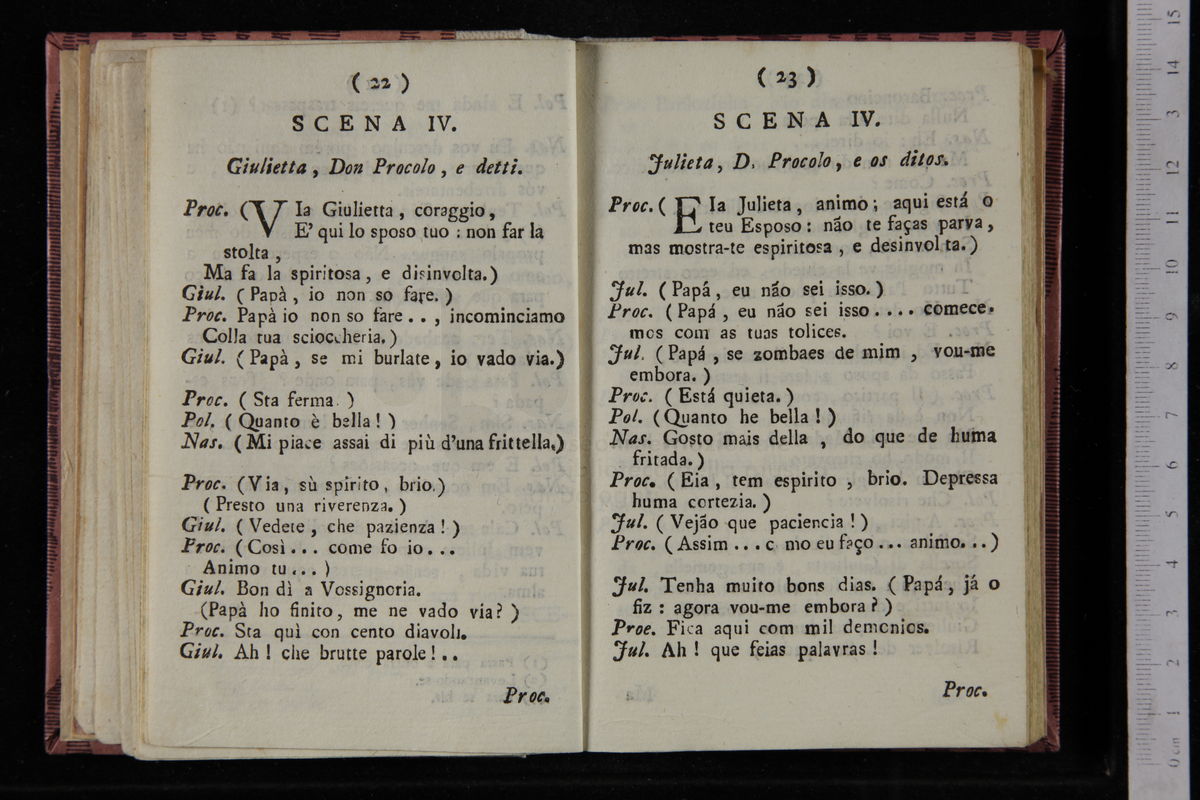 ( 22 )
SCENA IV.
Giulietta, Don Procolo, e detti.
Proc. (VIa Giulietta, coraggio,
E' qui lo sposo tuo: non far la
stolta,
Ma fa la spiritosa, e disinvolta.)
Giul. (Papà, io non so fare.)
Proc. Papà io non so fare.., incominciamo
Colla tua scioccheria.)
Giul. (Papà, se mi burlate, io vado via.)
Proc. (Sta ferma.)
Pol. (Quanto è bella!)
Nas. (Mi piace assai di più d'una frittella.)
Proc. (Via, sù spirito, brio.)
(Presto una riverenza.)
Giul. (Vedete, che pazienza!)
Proc. (Così... come fo io...
Animo tu...)
Giul. Bon dì a Vossignoria.
(Papà ho finito, me ne vado via?)
Proc. Sta quì con cento diavoli.
Giul. Ah! che brutte parole!..
Proc.
( 23 )
SCENA IV.
Julieta, D. Procolo, e os ditos.
Proc. (EIa Julieta, animo; aqui está o
teu Esposo: não te faças parva,
mas mostra-te espiritosa, e desinvolta.)
Jul. (Papá, eu não sei isso.)
Proc. (Papá, eu não sei isso.... comece-
mos com as tuas tolices.
Jul. (Papá, se zombaes de mim, vou-me
embora.)
Proc. (Está quieta.)
Pol. (Quanto he bella!)
Nas. Gosto mais della, do que de huma
fritada.)
Proc. (Eia, tem espirito, brio. Depressa
huma cortezia.)
Jul. (Vejão que paciencia!)
Proc. (Assim...c mo eu faço... animo...)
Jul. Tenha muito bons dias. (Papá, já o
fiz: agora vou-me embora?)
Proe. Fica aqui com mil demonios.
Jul. Ah! que feias palavras!
Proc.
0 cm 1 2 3 4 5 6 7 8 9 10 11 12 13 14 15